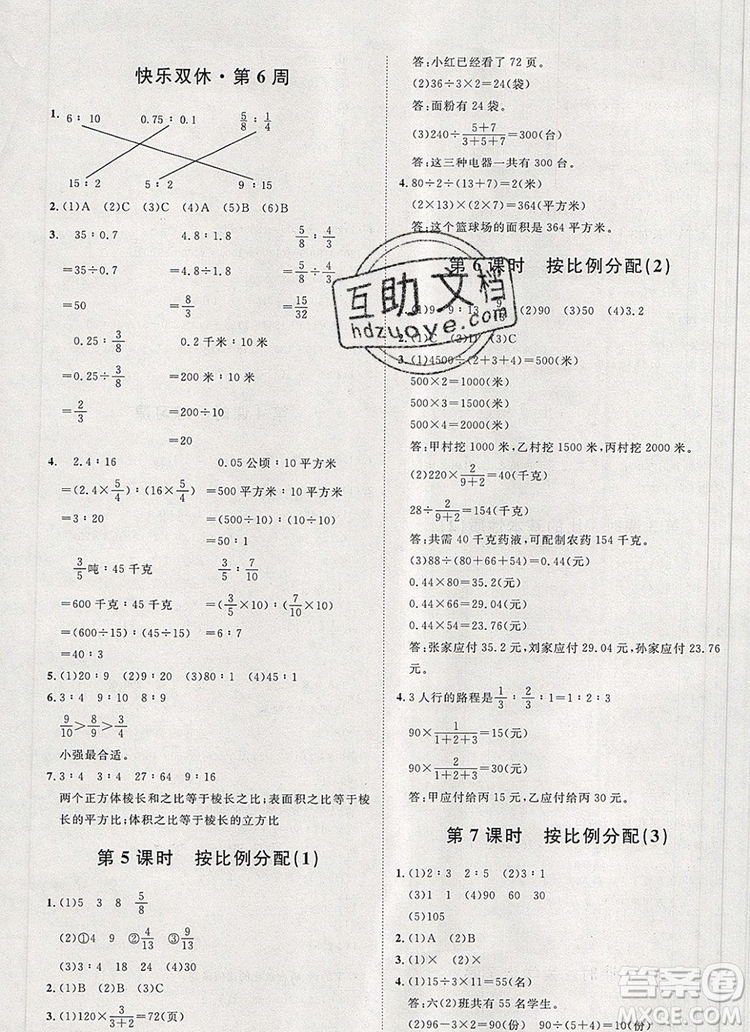 快乐双休·第 6 周
1. 6∶10　0.75∶0.1　5/8∶1/4
15∶2　5∶2　9∶15
2. (1)A　(2)C　(3)C　(4)A　(5)B　(6)B
3. 35∶0.7　4.8∶0.8　5/8∶4/3
=50　=15/32
0.25∶3/8　0.2千米∶10米
=0.25÷3/8　=200米∶10米
=2/3　=200÷10
=20
4. 2.4∶16　0.05公顷∶10平方米
=(2.4×5/4)∶(16×5/4)　=500平方米∶10平方米
=3∶20　=(500÷10)∶(10÷10)
=50∶1
3/5吨∶45千克
=600千克∶45千克
=(600÷15)∶(45÷15)
=40∶3
5. (1)20∶9　(2)9∶20　(3)20∶29　(4)9∶29
6. 3∶4　9∶10　8∶9
9/10>8/9>3/4
小强最合适。
7. 3∶4　3∶4　27∶64　9∶16
两个正方体棱长和之比等于棱长之比;表面积之比等于棱
长的平方比;体积之比等于棱长的立方比
第 5 课时　按比例分配(1)
1. (1)5　3　8　5/8
(2)①4　9　②4/13　③9/13
(3)40
2. (1)B　(2)A　(3)C　(4)C
3. (1)120×3/(3+2)=72(页)
答:小红已经看了 72 页。
(2)36÷3×2=24(袋)
答:面粉有 24 袋。
(3)240÷(5+7)/(3+5+7)=300(台)
答:这三种电器一共有 300 台。
4. 80÷2÷(13+7)=2(米)
(2×13)×(2×7)=364(平方米)
答:这个篮球场的面积是 364 平方米。
第 6 课时　按比例分配(2)
3. (1)4500÷(2+3+4)=500(米)
500×2=1000(米)
500×3=1500(米)
500×4=2000(米)
答:甲村挖 1000 米,乙村挖 1500 米,丙村挖 2000 米。
(2)220×2/(9+2)=40(千克)
28÷2/(9+2)=154(千克)
答:共需 40 千克药液,可配制农药 154 千克。
(3)88÷(80+66+54)=0.44(元)
0.44×80=35.2(元)
0.44×66=29.04(元)
0.44×54=23.76(元)
答:张家应付 35.2 元,刘家应付 29.04 元,孙家应付 23.76
元。
4. 3 人行的路程是1/3∶2/3∶1=1∶2∶3
90×1/(1+2+3)=15(元)
90×2/(1+2+3)=30(元)
答:甲应付给丙 15 元,乙应付给丙 30 元。
第 7 课时　按比例分配(3)
1. (1)2∶3　2∶5　(2)3∶1
(3)1　1　30　60　90　(4)9　15
(5)105
2. (1)A　(2)B
3. (1)×　(2)×
4. (1)15÷3×11=55(名)
答:六(2)班共有 55 名学生。
(2)96-3×2=90(份)　90÷(5+4)=10(份)
互助文档
hdzuoye.com
答案圈
MXQE.COM